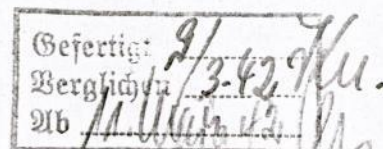 Gefertigt: 9/3.42 Ku.
Verglichen
Ab 11. März 42